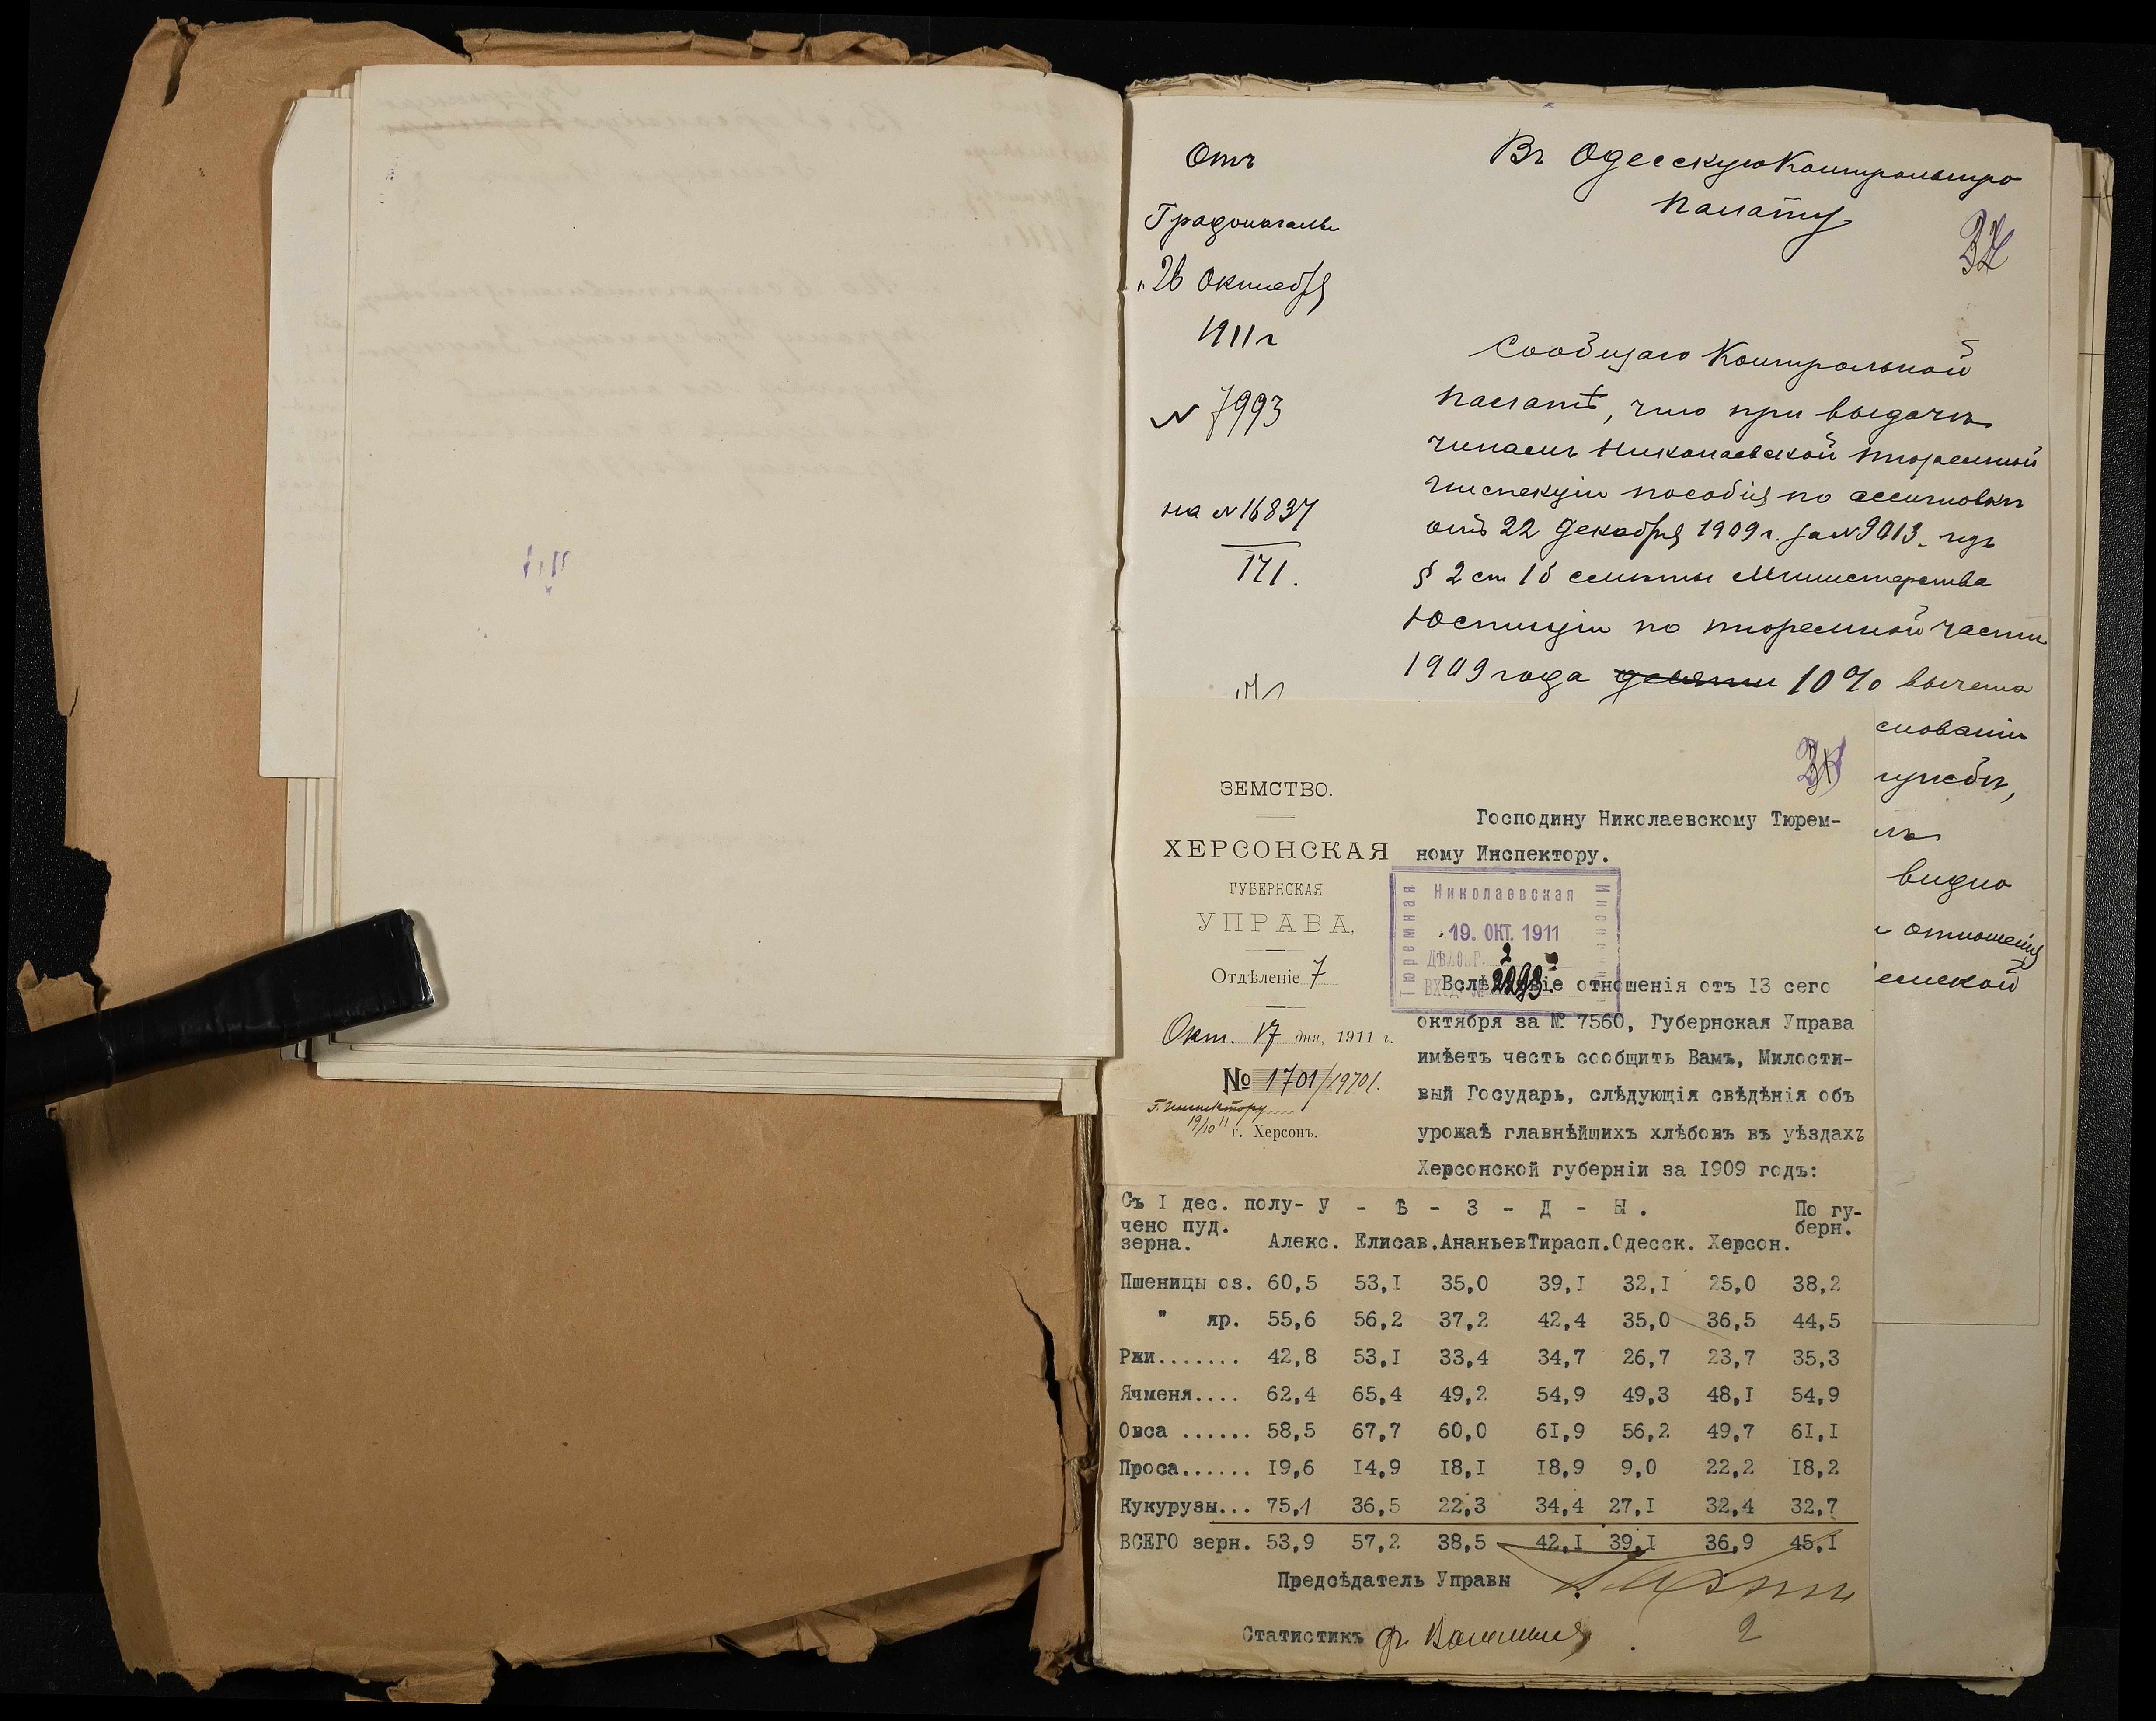 Отъ
Градоначаль
"26 Октября
1911 г
№ 7993
на № 16837
171.
Въ Одесскую Контрольную
Палату
Сообщаю Контрольной
Палатѣ, что при выдачѣ
чинамъ Николаевской тюремной
Инспекціи пособія по ассигновкѣ
отъ 22 Декабря 1909 г. за № 9013 изъ
§ 2 ст 1 б смѣты Министерства
Юстиціи по тюремной части
1909 года 10% вычета
сновании
лужбы,
видно
отношенія
емской
ЗЕМСТВО.
ХЕРСОНСКАЯ
ГУБЕРНСКАЯ
УПРАВА,
Отдѣленіе 7
Окт. 17 дня, 1911 г.
№ 1701/19701.
Г. Инспектору
19/10 11
г. Херсонъ.
Господину Николаевскому Тюрем-
ному Инспектору.
Николаевская
Тюремная
Инспекція
19. ОКТ. 1911
Вслѣдствіе отношенія отъ I3 сего
октября за № 7560, Губернская Управа
имѣетъ честь сообщить Вамъ, Милости-
вый Государь, слѣдующія свѣдѣнія объ
урожаѣ главнѣйшихъ хлѣбовъ въ уѣздахъ
Херсонской губерніи за I909 годъ:
Съ I дес. полу- У - Ѣ - З - Д - Ы. По гу-
чено пуд. берн.
зерна. Алекс. Елисав. Ананьев Тирасп. Одесск. Херсон.
Пшеницы оз. 60,5 53,I 35,0 39,I 32,I 25,0 38,2
" яр. 55,6 56,2 37,2 42,4 35,0 36,5 44,5
Ржи....... 42,8 53,I 33,4 34,7 26,7 23,7 35,3
Ячменя.... 62,4 65,4 49,2 54,9 49,3 48,I 54,9
Овса ...... 58,5 67,7 60,0 6I,9 56,2 49,7 6I,I
Проса...... I9,6 I4,9 I8,I I8,9 9,0 22,2 I8,2
Кукурузы... 75,1 36,5 22,3 34,4 27,I 32,4 32,7
ВСЕГО зерн. 53,9 57,2 38,5 42,I 39,I 36,9 45,I
Предсѣдатель Управы
Статистикъ
2